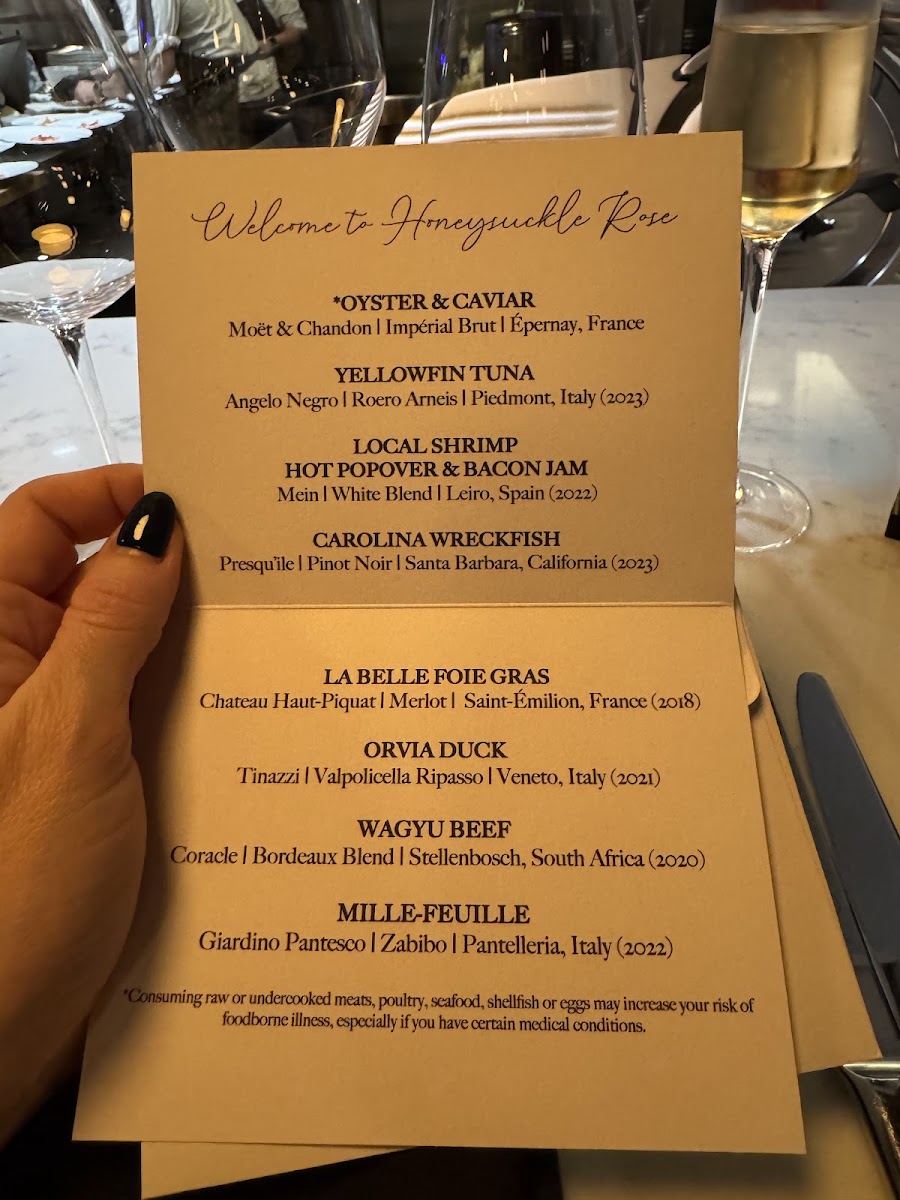 Welcome to Honeysuckle Rose
*OYSTER & CAVIAR
Moët & Chandon | Impérial Brut | Épernay, France
YELLOWFIN TUNA
Angelo Negro | Roero Arneis | Piedmont, Italy (2023)
LOCAL SHRIMP
HOT POPOVER & BACON JAM
Mein | White Blend | Leiro, Spain (2022)
CAROLINA WRECKFISH
Presqu'ile | Pinot Noir | Santa Barbara, California (2023)
LA BELLE FOIE GRAS
Chateau Haut-Piquat | Merlot | Saint-Émilion, France (2018)
ORVIA DUCK
Tinazzi | Valpolicella Ripasso | Veneto, Italy (2021)
WAGYU BEEF
Coracle | Bordeaux Blend | Stellenbosch, South Africa (2020)
MILLE-FEUILLE
Giardino Pantesco | Zabibo | Pantelleria, Italy (2022)
*Consuming raw or undercooked meats, poultry, seafood, shellfish or eggs may increase your risk of
foodborne illness, especially if you have certain medical conditions.